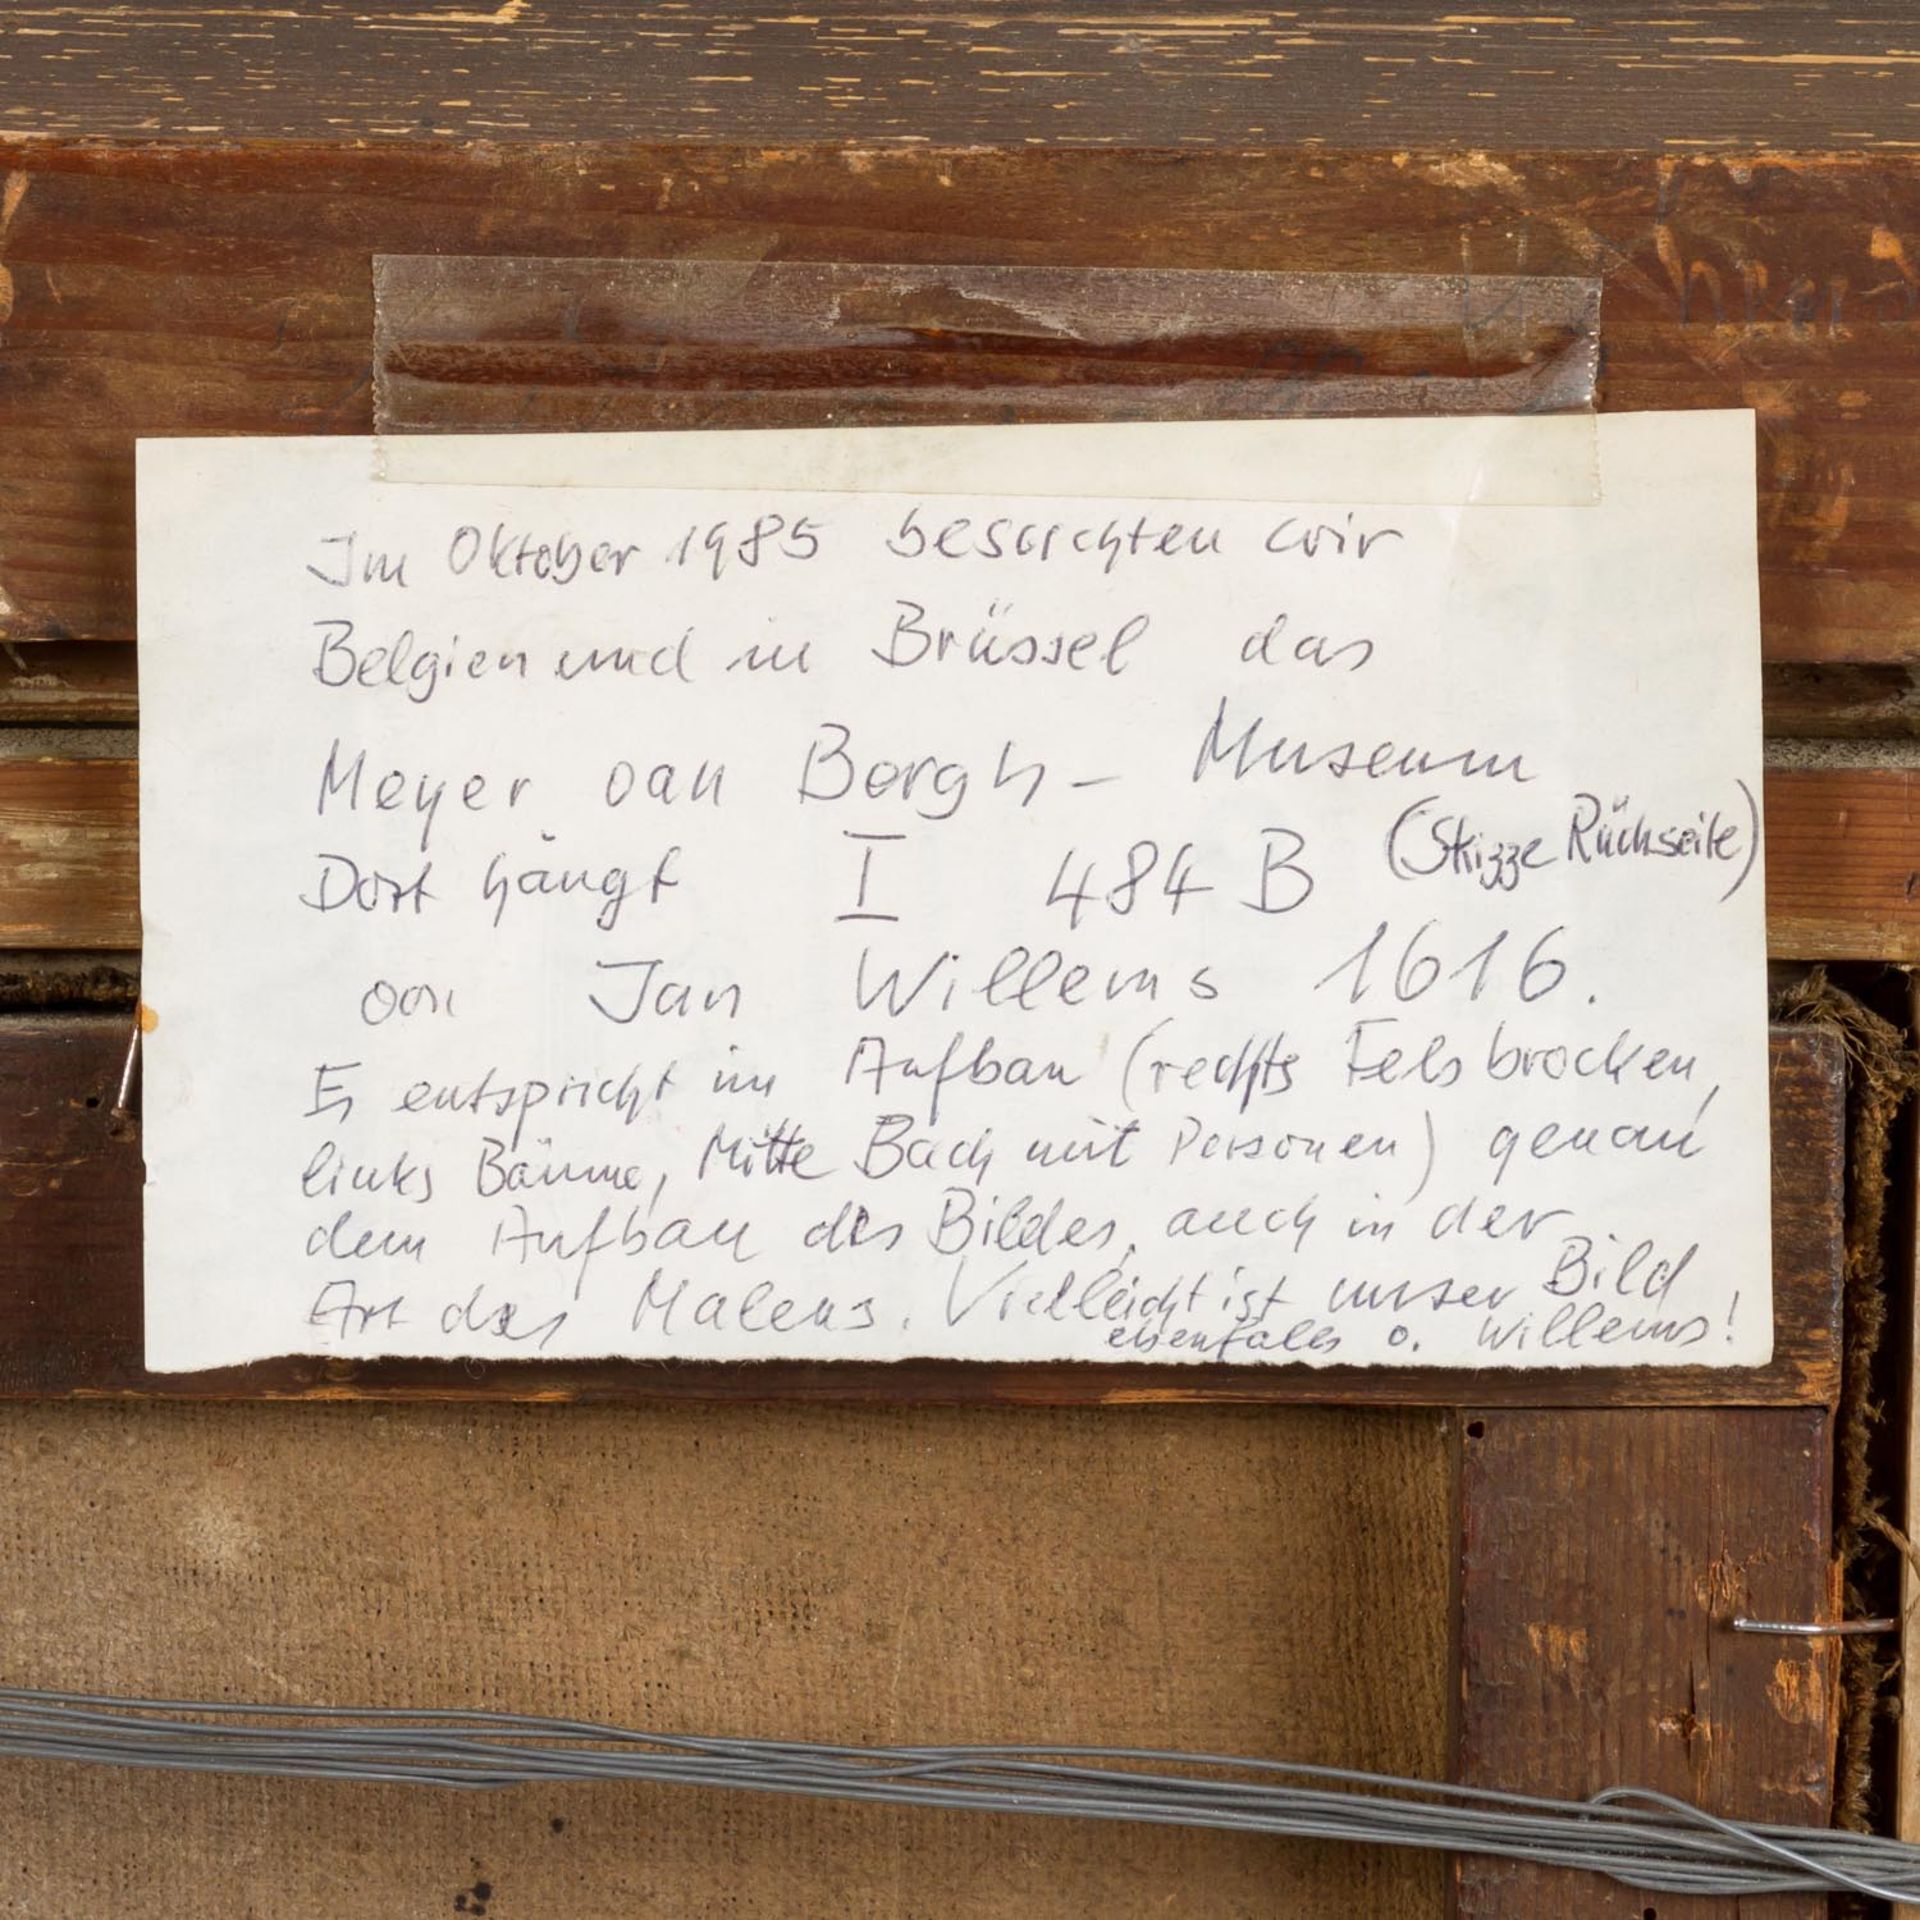 Im Oktober 1985 besuchten wir
Belgien und in Brüssel das
Meyer van Bergh - Museum
Dort hängt I 484 B (Skizze Rückseite)
von Jan Willems 1616.
Es entspricht im Aufbau (rechts Felsbrocken,
links Bäume, Mitte Bach mit Personen) genau
dem Aufbau des Bildes, auch in der
Art des Malens. Vielleicht ist unser Bild
ebenfalls v. Willems!